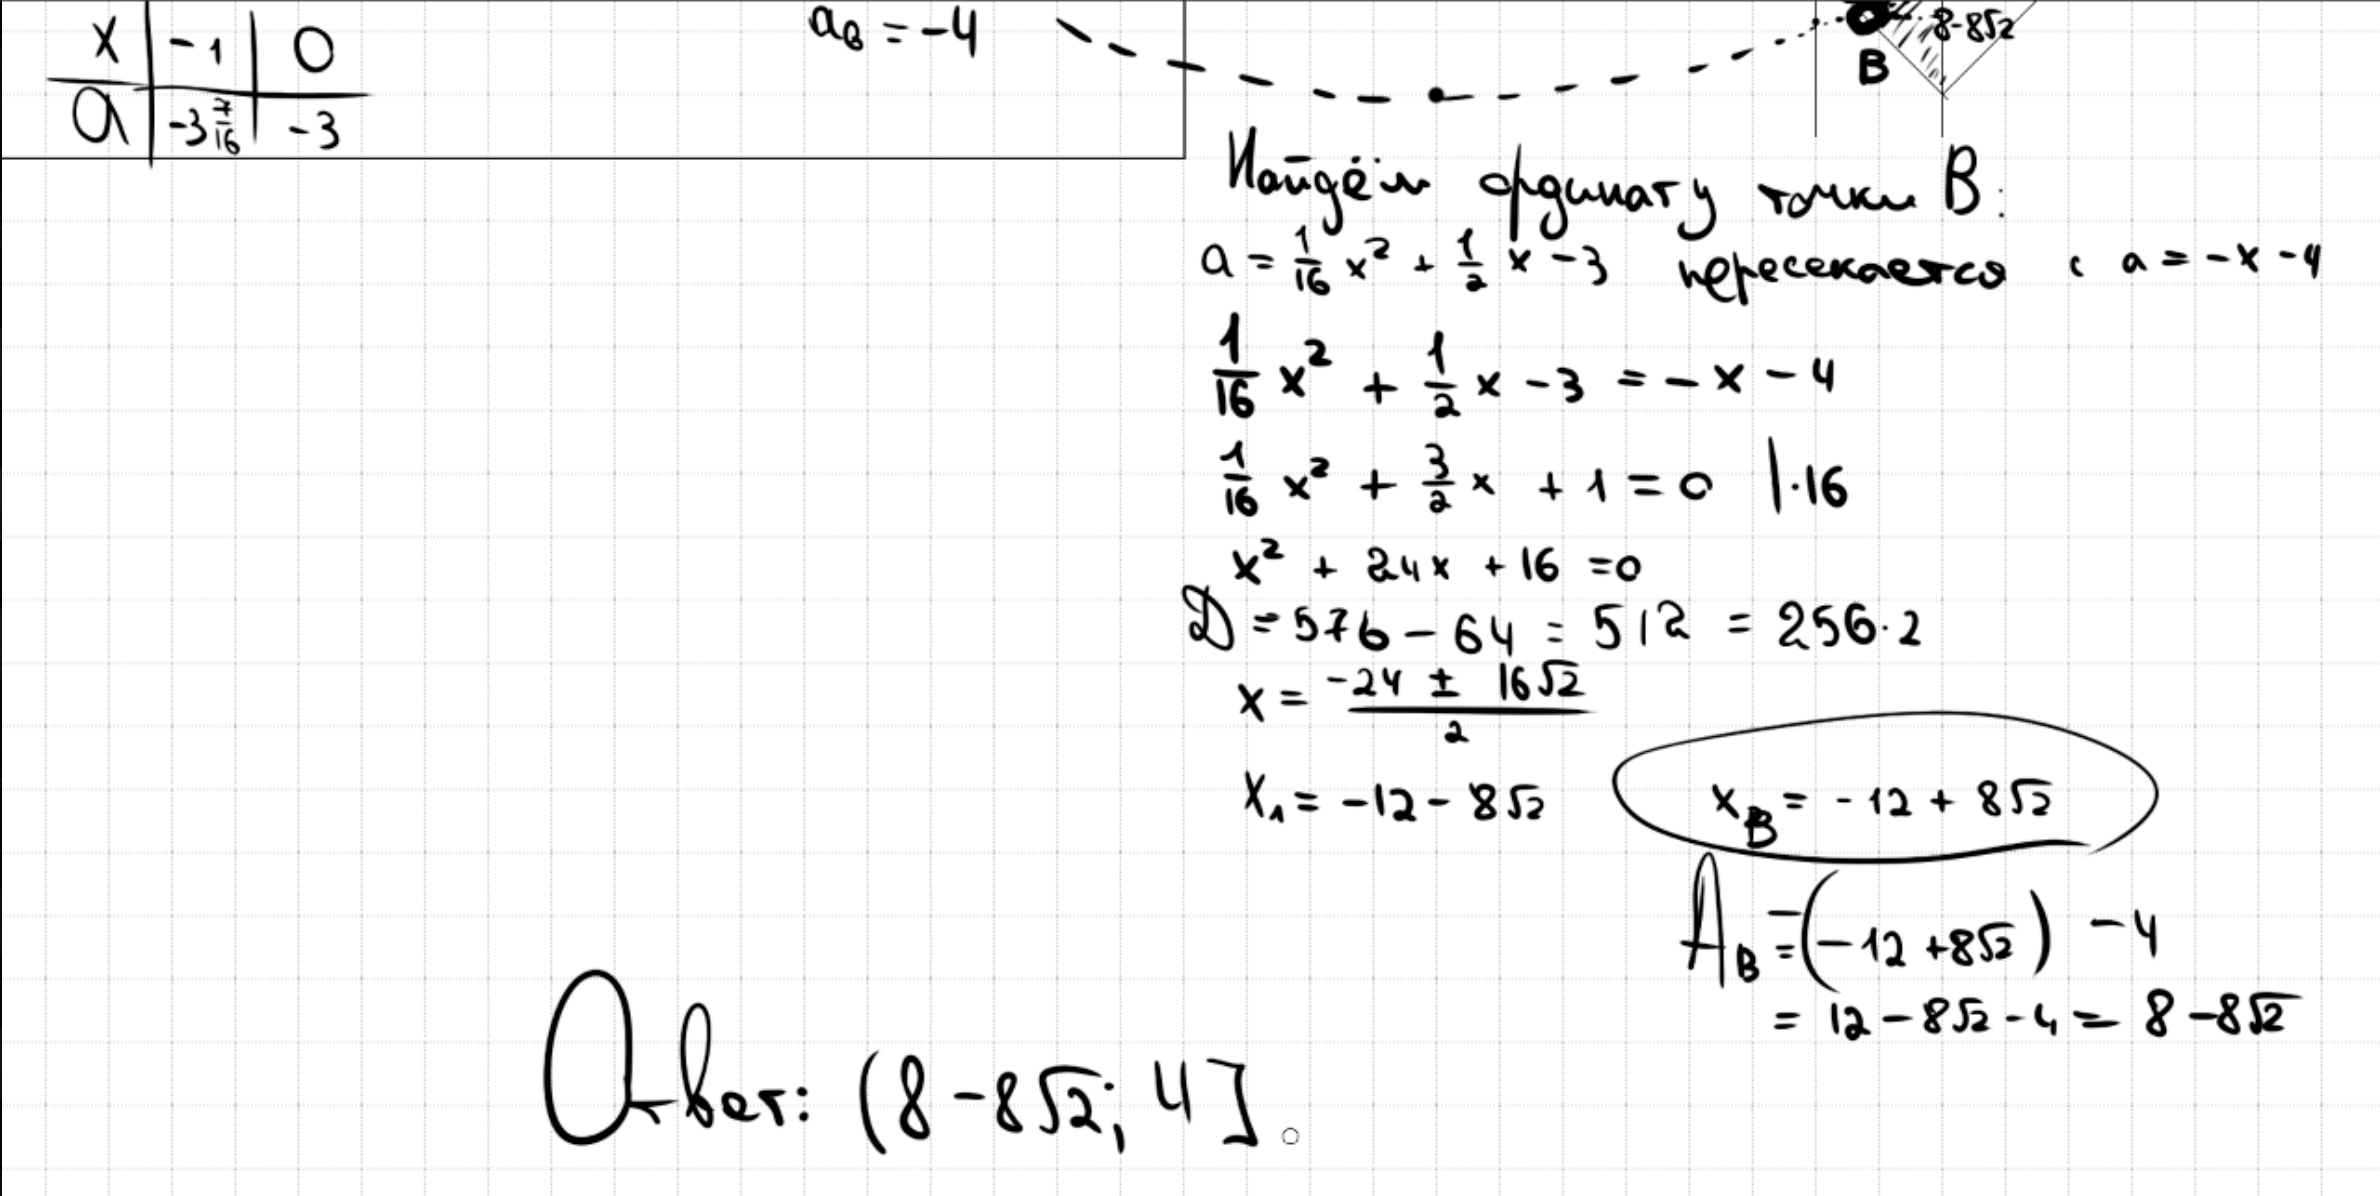 x | -1 | 0
a | -3 7/16 | -3
a_в = -4
8-8√2
B
Найдём ординату точки B:
a = 1/16 x² + 1/2 x - 3 пересекается с a = -x - 4
1/16 x² + 1/2 x - 3 = -x - 4
1/16 x² + 3/2 x + 1 = 0 |·16
x² + 24x + 16 = 0
D = 576 - 64 = 512 = 256·2
x = (-24 ± 16√2)/2
x₁ = -12 - 8√2 x_B = -12 + 8√2
A_B = -(-12 + 8√2) - 4
= 12 - 8√2 - 4 = 8 - 8√2
Ответ: (8 - 8√2; 4].